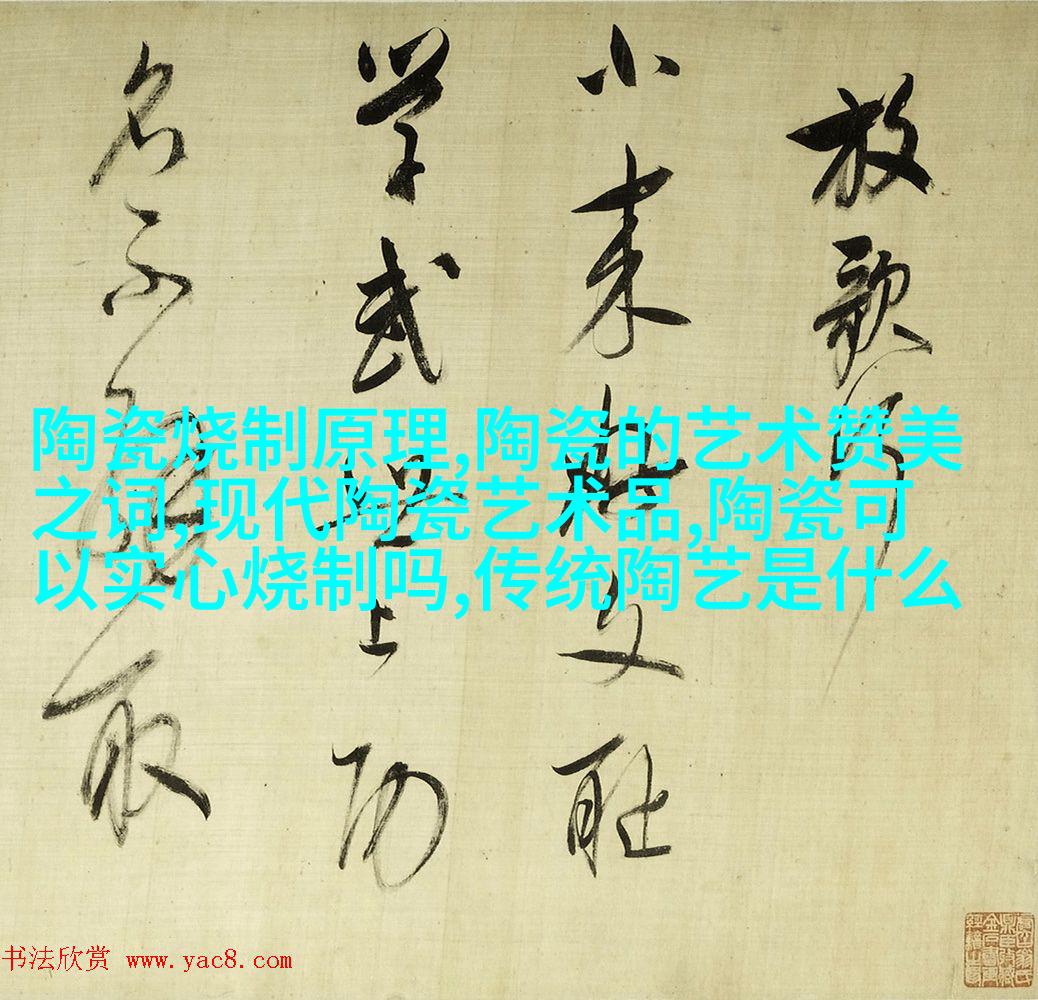 放歌行
小来文耻
学武世上功
名不解取
陶瓷烧制原理,陶瓷的艺术赞美
之词,现代陶瓷艺术品,陶瓷可
以实心烧制吗,传统陶艺是什么
书法欣赏 www.yac8.com